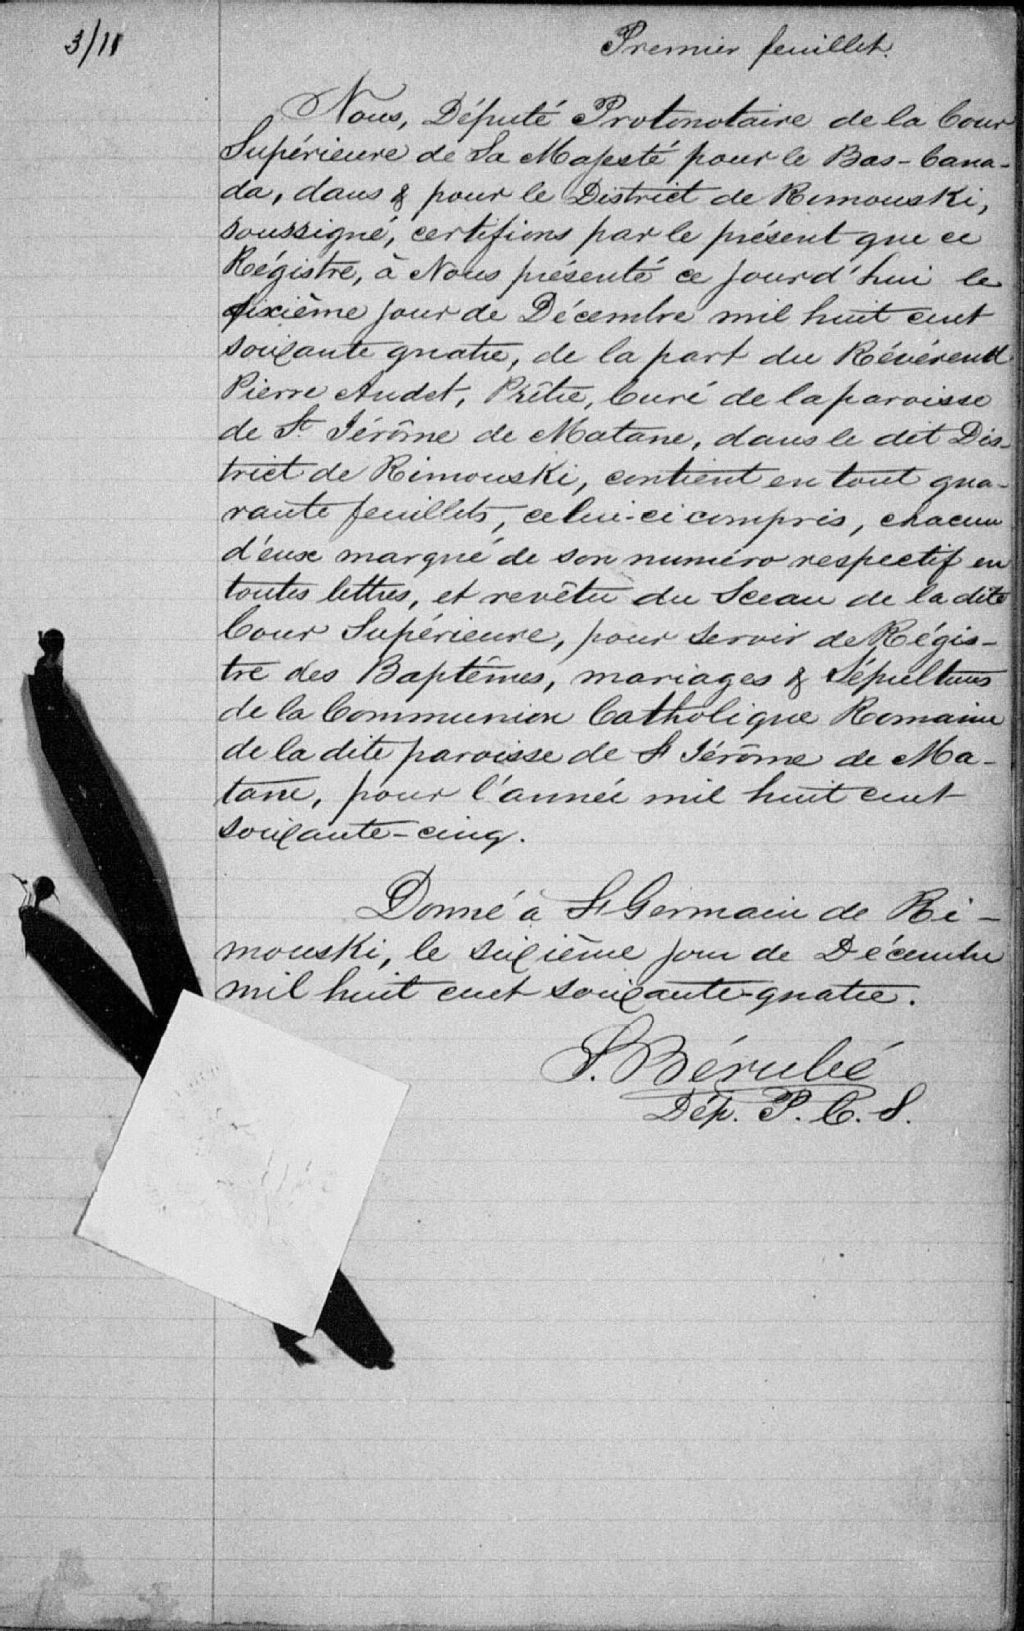 3/11
Premier feuillet.
Nous, Député Protonotaire de la Cour
Supérieure de Sa Majesté pour le Bas-Cana-
da, dans & pour le District de Rimouski,
soussigné, certifions par le présent que ce
Régistre, à Nous présenté ce jourd'hui le
sixième jour de Décembre mil huit cent
soixante quatre, de la part du Révérend
Pierre Audet, Prêtre, Curé de la paroisse
de St. Jérôme de Matane, dans le dit Dis-
trict de Rimouski, contient en tout qua-
rante feuillets, celui-ci compris, chacun
d'eux marqué de son numéro respectif en
toutes lettres, et revêtu du Sceau de la dite
Cour Supérieure, pour servir de Régis-
tre des Baptêmes, mariages & Sépultures
de la Communion Catholique Romaine
de la dite paroisse de St Jérôme de Ma-
tane, pour l'année mil huit cent
soixante-cinq.
Donné à St Germain de Ri-
mouski, le sixième jour de Décembre
mil huit cent soixante-quatre.
S. Bérubé
Dép. P. C. S.